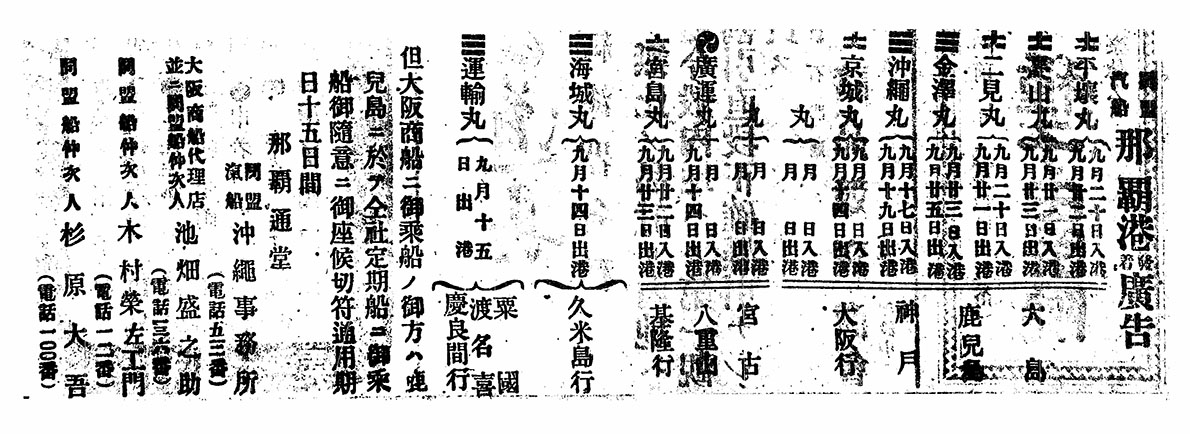 同盟汽船 那覇港発着廣告
平壤丸 九月二十日入港
九月廿二日出港
九月廿一日入港
九月廿三日出港
二見丸 九月二十日入港
九月廿一日出港
金澤丸 九月廿三日入港
九月廿五日出港
沖繩丸 九月十七日入港
九月十九日出港
京城丸 月 日入港
九月十四日出港
丸 月 日入港
月 日出港
大島
鹿兒島
神戸
大阪行
丸 月 日入港
月 日出港
廣運丸 月 日入港
九月十四日出港
宮島丸 九月廿二日入港
九月廿三日出港
宮古
八重山
基隆行
海城丸 九月十四日出港 久米島行
運輸丸 九月十五日出港
粟國
渡名喜
慶良間行
但大阪商船ニ御乘船ノ御方ハ鹿
兒島ニ於テ仝社定期船ニ御乘
船御隨意ニ御座候切符通用期
日十五日間
那覇通堂
同盟汽船 沖繩事務所
(電話五二番)
大阪商船代理店
並ニ同盟船仲次人 池畑盛之助
(電話三六番)
同盟船仲次人 木村榮左工門
(電話一二番)
同盟船仲次人 杉原大吾
(電話一〇〇番)